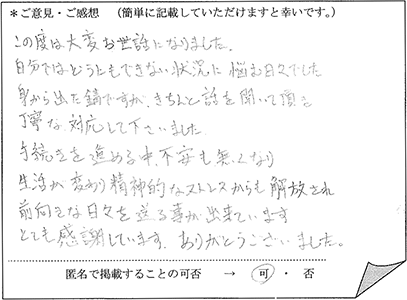 ＊ご意見・ご感想　（簡単に記載していただけますと幸いです。）
この度は大変お世話になりました。
自分ではどうにもできない状況に悩む日々でした
身から出た錆ですが、きちんと話を聞いて頂き
丁寧な対応して下さいました
手続きを進める中、不安も無くなり
生活が変わり精神的なストレスからも解放され
前向きな日々を送る事が出来ています
とても感謝しています。ありがとうございました。
匿名で掲載することの可否　→　可　・　否